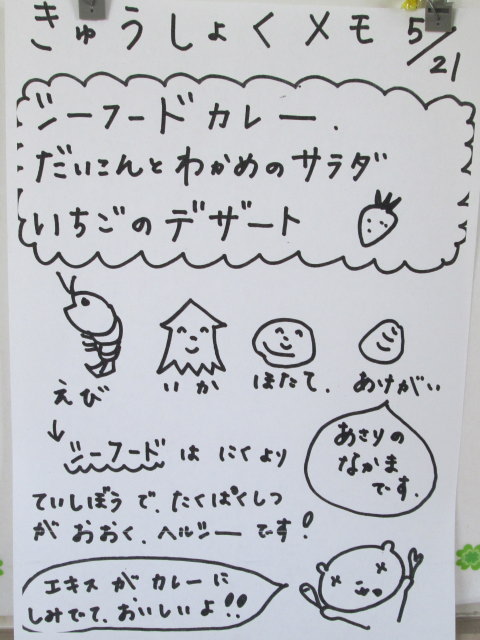 きゅうしょくメモ 5/21
シーフードカレー.
だいこんとわかめのサラダ
いちごのデザート
えび いか ほたて. あけがい
↓ シーフードは にくより
あさりの
なかま
です.
ていしぼうで、たくぱくしつ
が おおく、ヘルシーです!
エキスが、カレーに
しみでて、おいしいよ!!